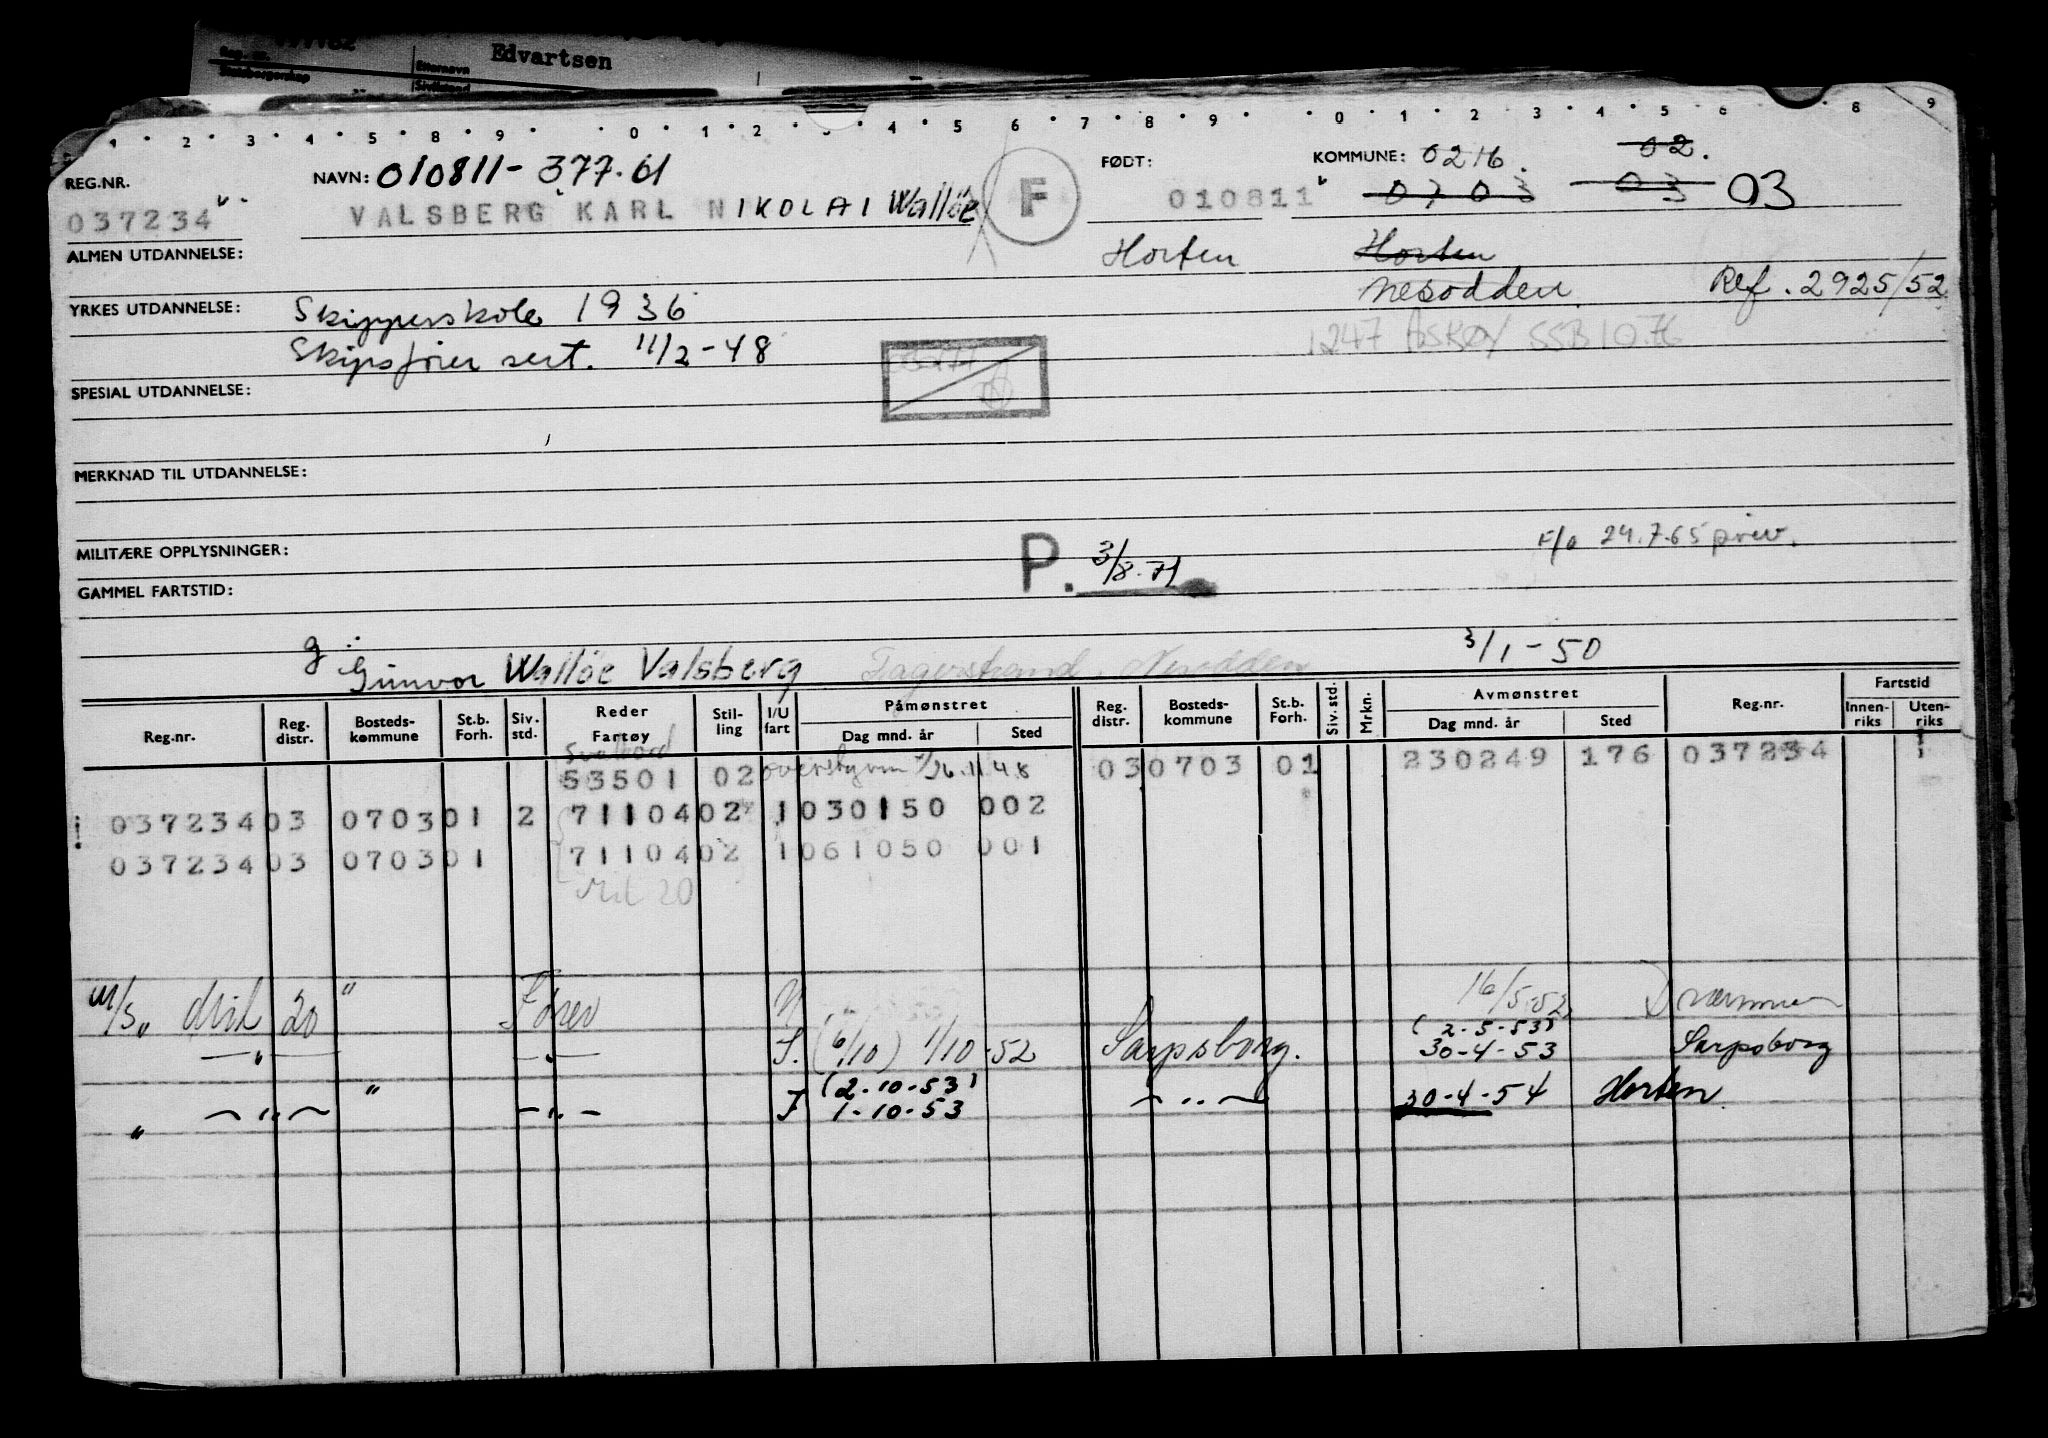 Edvartsen
1 2 3 4 5 8 9 0 1 2 3 4 5 6 7 8 9 0 1 2 3 4 5 6 8 9
REG.NR. NAVN: 010811- 377.61 F FØDT: KOMMUNE: 0216. 02.
037234 VALSBERG KARL NIKOLAI Wallöe 010811 0703 03 03
ALMEN UTDANNELSE: Horten Horten
YRKES UTDANNELSE: Skipperskole 1936 Nesodden Ref. 2925/52
Skipsfører sert. 11/2-48 1247 ASKØY SSB 10.76
SPESIAL UTDANNELSE:
MERKNAD TIL UTDANNELSE:
MILITÆRE OPPLYSNINGER: P. 3/8.71 F/o 24.7.65 priv.
GAMMEL FARTSTID:
g: Gunvor Wallöe Valsberg Fagerstrand, Nesodden 3/1-50
Reg.nr. Reg. distr. Bosteds- kommune St.b. Forh. Siv. std. Reder Fartøy Stil- ling I/U fart Påmønstret Dag mnd. år Sted Reg. distr. Bosteds- kommune St.b. Forh. Siv. std. Mrkn. Avmønstret Dag mnd. år Sted Reg.nr. Fartstid Innen- riks Uten- riks
Svalbard
53501 02 overstyrm 26.11.48 03 0703 01 230249 176 037234
037234 03 0703 01 2 71104 02 1 030150 002
037234 03 0703 01 71104 02 1 061050 001
Mil 20
M/S Mil 20 " Fører 16/5.52 Drammen
— " — — " — (6/10) 1/10-52 Sarpsborg. (2-5-53) 30-4-53 Sarpsborg
" — " — " — " — (2-10-53) 1-10-53 — " — 30-4-54 Horten